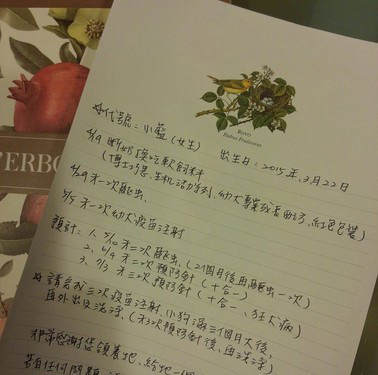 TERBO
Rovo
Rubus Fruticosus
☆代號：小藍(女生) 出生日：2015年.3月22日
4/19 斷奶換吃軟飼料
(博士巧思.生机活力系列.幼犬專業 紅色包裝)
4/29 才一次驅虫.
5/5 才一次幼犬疫苗注射
預計：1. 5/10 才二次驅虫.(2個月後再驅虫一次)
2. 6/4 才二次預防針(十合一)
3. 7/3 才三次預防針(十合一、狂犬病)
☆請完成三次疫苗注射.小狗滿三個月大後,
再外出及洗澡.(才三次預防針後.再洗澡)
非常感謝您領養牠、給牠一個
若有任何問題